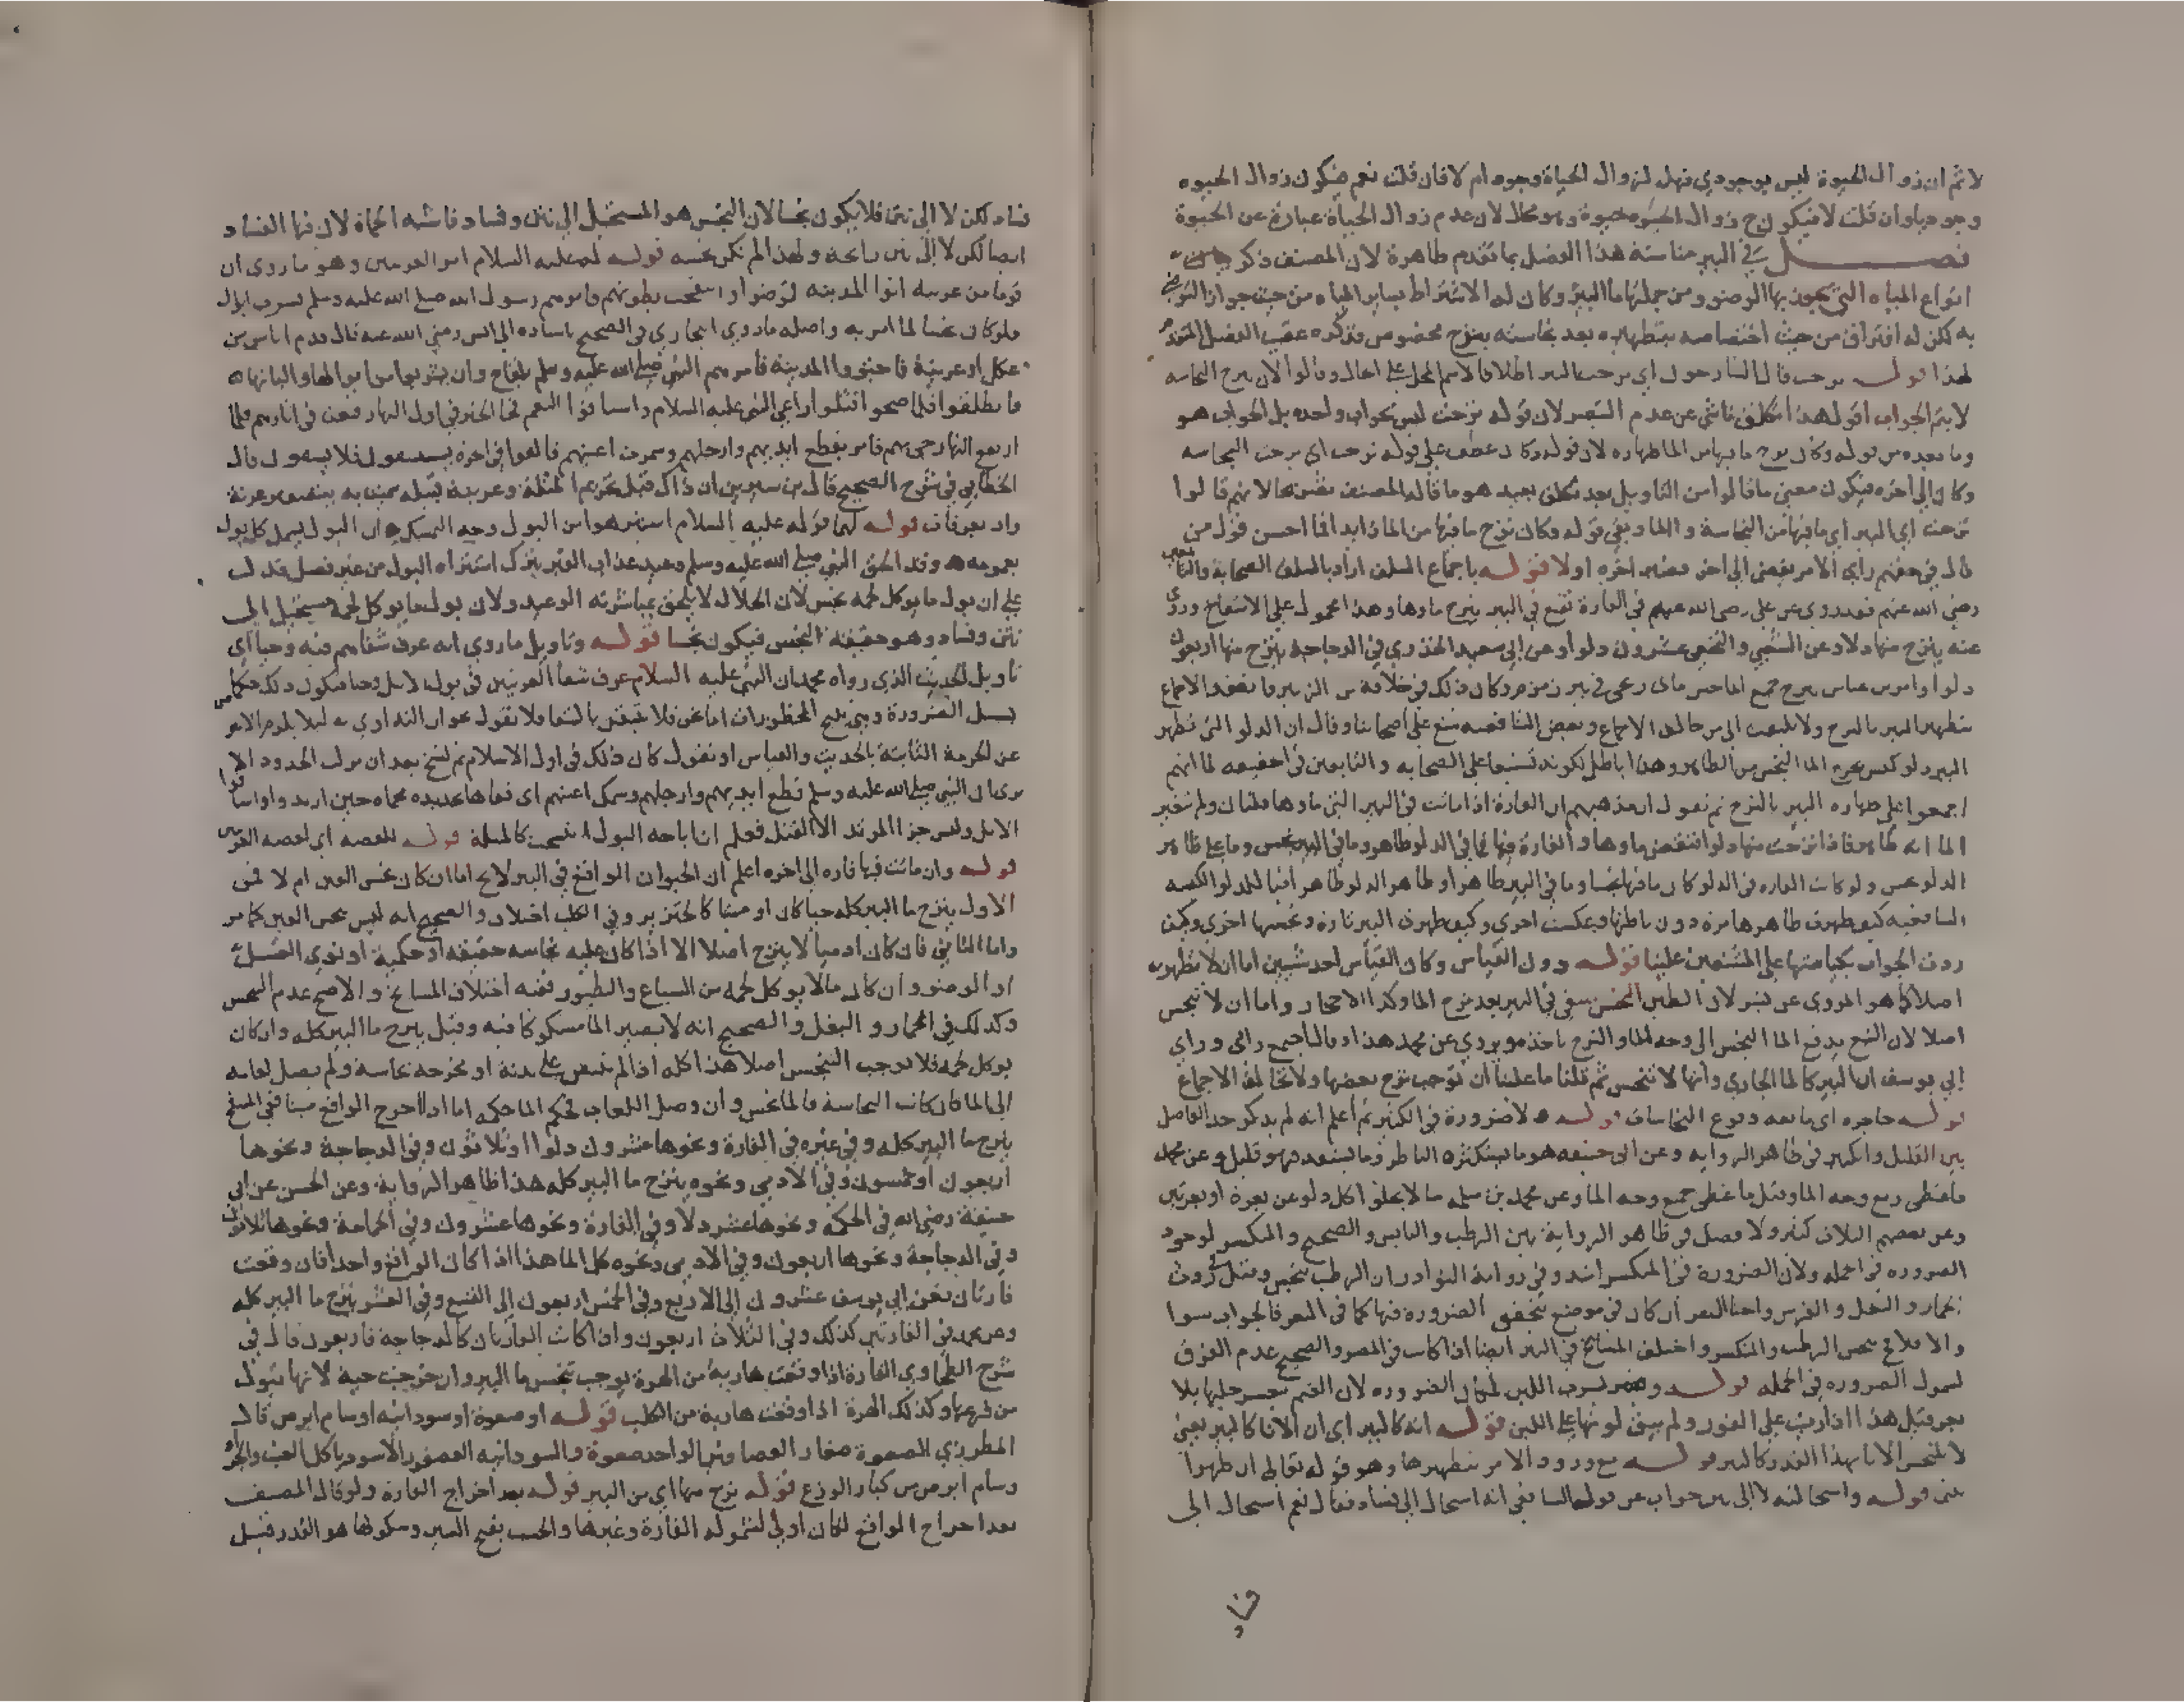 لا ثم ان زوال الحيوة ليس بوجودي فهل لزوال الحياة وجود ام لا فان قلت نعم فيكون زوال الحيوة
وجوديا وان قلت لا فيكون ح زوال الحيوة حيوة وهو محال لان عدم زوال الحياة عبارة عن الحيوة
فصل في البير مناسبة هذا الفصل بما تقدم ظاهرة لان المصنف ذكر
انواع المياه التي يجوز بها الوضو ومن جملتها ما البير وكان له الاشتراط بساير المياه من حيث جواز التوضي
به لكن له افتراق من حيث اختصاصه بتطهيره بعد نجاسته بنزح مخصوص فذكره عقيب الفصل المتقدم
لهذا قوله نزحت قال الشارحون اي نزحت البير اطلاقا لاسم المحل على الحال وقالوا لان نزح النجاسه
لا يتم الجواب اقول هذا تكلف ناشي عن عدم التبصر لان قوله نزحت ليس بجواب وحده بل الجواب هو
وما بعده من قوله وكان نزح ما فيها من الما طهاره لان قوله وكان عطف على قوله نزحت اي نزحت النجاسه
وكان الى اخره فيكون معنى ما قالوا من التاويل بعد تكلف بعيد هو ما قاله المصنف بعينه الا انهم قالوا
نزحت اي البير اي ما فيها من النجاسة والما وبقي قوله وكان نزح ما فيها من الما زايدا فما احسن قول من
قال في حقهم راي الامر يفضي الى اخر فصير اخره اولا قوله باجماع السلف اراد بالسلف الصحابة والتابعين
رضي الله عنهم فقد روي عن علي رضي الله عنهم في الفارة تقع في البير ينزح ماوها وهذا محمول على الانتفاخ وروي
عنه ينزح منها دلاء وعن الشعبي والنخعي عشرون دلوا وعن ابي سعيد الخدري في الدجاجة ينزح منها اربعون
دلوا وامر بن عباس بنزح جميع الما حين مات زنجي في بير زمزم وكان ذلك في خلافة بن الزبير فانعقد الاجماع
بتطهير البير بالنزح ولا يلتفت الى من خالف الاجماع وبعض الشافعيه شنع على اصحابنا وقال ان الدلو التي تطهر
البير دلو كيس يخرج الما النجس من الطاهر وهذا باطل لكونه تشنيعا على الصحابه والتابعين في الحقيقه لما انهم
اجمعوا على طهاره البير بالنزح ثم نقول ان مذهبهم ان الفارة اذا ماتت في البير التي ماوها قلتان ولم يتغير
الما انه طاهر فاذا نزحت منها دلوا فنقص ماوها والفارة فيها فما في الدلو طاهر وما في البير نجس وما على ظاهر
الدلو نجس ولو كانت الفاره في الدلو كان ما فيها نجسا وما في البير طاهرا وظاهر الدلو طاهر افيا للدلو الكيسه
الشافعيه كيف طهرت ظاهرها مره دون باطنها وعكست اخري وكيف طهرت البير تارة ونجستها اخري وكيف
ردت الجواب بكياستها على المشنعين علينا قوله دون القياس وكان القياس احد شيين اما ان لا تطهر
اصلا كما هو المروي عن بشر لان الطين النجس يبقى في البير بعد نزح الما وكذا الاحجار واما ان لا تنجس
اصلا لان النبع يدفع الما النجس الى وجه الما والنزح ياخذه ويروي عن محمد هذا وقال اجمع رائي وراي
ابي يوسف ان البير كالما الجاري وانها لا تنجس ثم قلنا ما علينا ان نوجب نزح بعضها ولا نخالف الاجماع
قوله حاجزه اي مانعه وقوع النجاسات قوله ولا ضرورة في الكثير ثم اعلم انه لم يذكر حد الفاصل
بين القليل والكثير في ظاهر الروايه وعن ابي حنيفه هو ما يستكثره الناظر وما يستقله فهو قليل وعن محمد
ما غطى ربع وجه الما وقيل ما غطى جميع وجه الما وعن محمد بن سلمه ما لا يخلوا كل دلو عن بعرة او بعرتين
وعن بعضهم الثلاث كثير ولا فصل في ظاهر الرواية بين الرطب واليابس والصحيح والمنكسر لوجود
الضروره في الجمله ولان الضرورة في المنكسر اشد وفي رواية النوادر ان الرطب ينجس وقيل في روث
الحمار والبغل والفرس واخثا البقر ان كان في موضع يتحقق الضروره فيها كما في البعر فالجواب سوا
والا فلا نجس الرطب والمنكسر واختلف المشايخ في البير ايضا اذا كانت في المصر والصحيح عدم الفرق
لشمول الضروره في الجمله قوله ويشرب اللبن لمكان الضروره لان الغنم يعسر حلبها بلا
بعر وقيل هذا اذا رميت على الفور ولم يبق لونها على اللبن قوله انه كالبير اي ان الانا كالبير يعني
لا ينجس الانا بهذا القدر كالبير قوله مع ورود الامر بتطهيرها وهو قوله تعالى ان طهرا
بيتي قوله واستحالته لا الى نتن جواب عن قول الشافعي انه استحال الى فساد فقال نعم استحال الى
فساد
فساد لكن لا الى نتن فلا يكون نجسا لان النجس هو المستحيل الى نتن وفساد فاشبه الحماة لان فيها الفساد
ايضا لكن لا الى نتن رائحة ولهذا لم تكن نجسه قوله لمه عليه السلام امر العرنيين وهو ما روي ان
قوما من عرينه اتوا المدينه فمرضوا وانتفخت بطونهم فامرهم رسول الله صلى الله عليه وسلم بشرب ابوال
فلو كان نجسا لما امر به واصله ما روي البخاري في الصحيح باسناده الى انس رضي الله عنه قال قدم اناس من
عكل او عرينة فاجتووا المدينة فامرهم النبي صلى الله عليه وسلم بلقاح وان يشربوا من ابوالها والبانها
فانطلقوا فلما صحوا قتلوا راعي النبي عليه السلام واستاقوا النعم فجا الخبر في اول النهار فبعث في اثارهم فلما
ارتفع النهار جي بهم فامر بقطع ايديهم وارجلهم وسمرت اعينهم فالقوا في الحرة يستسقون فلا يسقون قال
الخطابي في شرح الصحيح قال بن سيرين ان ذاك قبل تحريم المثلة وعرينة قبيله سميت به بتصغير عرنة
واد بعرفات قوله لهما قوله عليه السلام استنزهوا من البول وجه التمسك ان البول يشمل كل بول
بعمومه وقد الحق النبي صلى الله عليه وسلم وعيد عذاب القبر بترك استنزاه البول من غير فصل فدل
على ان بول ما يوكل لحمه نجس لان الحلال لا يلحق بمباشرته الوعيد ولان بول ما يوكل لحمه يستحيل الى
نتن وفساد وهو حقيقة النجس فيكون نجسا قوله وتاويل ما روي انه عرف شفاهم فيه وحيا اي
تاويل الحديث الذي رواه محمد ان النبي عليه السلام عرف شفا العرنيين في بول الابل وحيا فيكون ذلك حكما من
قبيل الضرورة وهي تبيح المحظورات اما نحن فلا نتيقن بالشفا فلا نقول بجواز التداوي به ليلا يلزم الاعراض
عن الحرمة الثابتة بالحديث والقياس او نقول كان ذلك في اول الاسلام ثم نسخ بعد ان نزلت الحدود الا
تري ان النبي صلى الله عليه وسلم قطع ايديهم وارجلهم وسمل اعينهم اي فقاها بحديده محماه حين ارتدوا واستاقوا
الابل وليس جزا المرتد الا القتل فعلم ان اباحه البول انتسخت كالمثلة قوله للقصه اي لقصه العرنيين
قوله وان ماتت فيها فاره الى اخره اعلم ان الحيوان الواقع في البير لا يخ اما ان كان نجس العين ام لا ففي
الاول ينزح ما البير كله حيا كان او ميتا كالخنزير وفي الكلب اختلاف والصحيح انه ليس نجس العين كما مر
واما الثاني فان كان ادميا لا ينزح اصلا الا اذا كان عليه نجاسه حقيقه او حكمية او نوي الغسل
او الوضو وان كان مما لا يوكل لحمه من السباع والطيور ففيه اختلاف المشايخ والاصح عدم النجس
وكذلك في الحمار والبغل والصحيح انه لا يصير الما مشكوكا فيه وقيل ينزح ما البير كله وان كان
يوكل لحمه فلا يوجب التنجس اصلا هذا كله اذا لم يتيقن على بدنه او مخرجه نجاسة ولم يصل لعابه
الى الما فان كانت النجاسة فالما نجس وان وصل اللعاب فحكم الما حكمه اما اذا اخرج الواقع ميتا ففي المنتفخ
ينزح ما البير كله وفي غيره في الفارة ونحوها عشرون دلوا او ثلاثون وفي الدجاجة ونحوها
اربعون او خمسون وفي الادمي ونحوه ينزح ما البير كله هذا ظاهر الرواية وعن الحسن عن ابي
حنيفة رضي الله في الحلمه ونحوها عشر دلاء وفي الفارة ونحوها عشرون وفي الحمامة ونحوها ثلاثون
وفي الدجاجة ونحوها اربعون وفي الادمي ونحوه كل الما هذا اذا كان الواقع واحدا فان وقعت
فارتان فعن ابي يوسف عشرون الى الاربع وفي الخمس اربعون الى التسع وفي العشر ينزح ما البير كله
وعن محمد في الفارتين كذلك وفي الثلاث اربعون واذا كانت الفارتان كالدجاجة فاربعون قال في
شرح الطحاوي الفارة اذا وقعت هاربة من الهرة يوجب تنجس ما البير وان خرجت حية لانها تبول
من فزعها وكذلك الهرة اذا وقعت هاربة من الكلب قوله او صعوة او سودانيه او سام ابرص قال
المطرزي الصعوة صغار العصافير الواحد صعوة والسودانيه العصفور الاسود ياكل العنب والجراد
وسام ابرص من كبار الوزغ قوله نزح منها اي من البير قوله بعد اخراج الفارة ولو قال المصنف
بعد اخراج الواقع لكان اولى لشموله الفارة وغيرها والحسب بفتح السين وسكونها هو القدر قيل